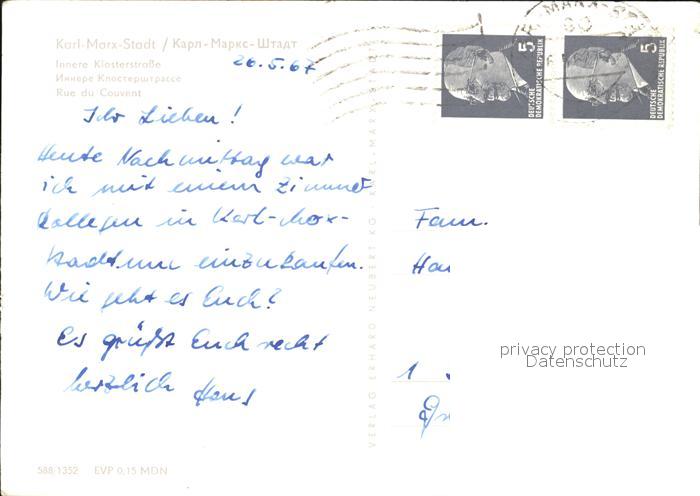 Karl-Marx-Stadt / Карл-Маркс-Штадт
Innere Klosterstraße
Иннере Клостерштрассе
Rue du Couvent
26.5.67
Ihr Lieben!
Heute Nachmittag war
ich mit einem Zimmer
kollegen in Karl-Marx-
Stadt um einzukaufen.
Wie geht es Euch?
Es grüßt Euch recht
herzlich Hans
588/1352 EVP 0,15 MDN
VERLAG ERHARD NEUBERT KG · KARL-MARX
5
DEUTSCHE
DEMOKRATISCHE REPUBLIK
5
DEUTSCHE
DEMOKRATISCHE REPUBLIK
Fam.
1
privacy protection
Datenschutz